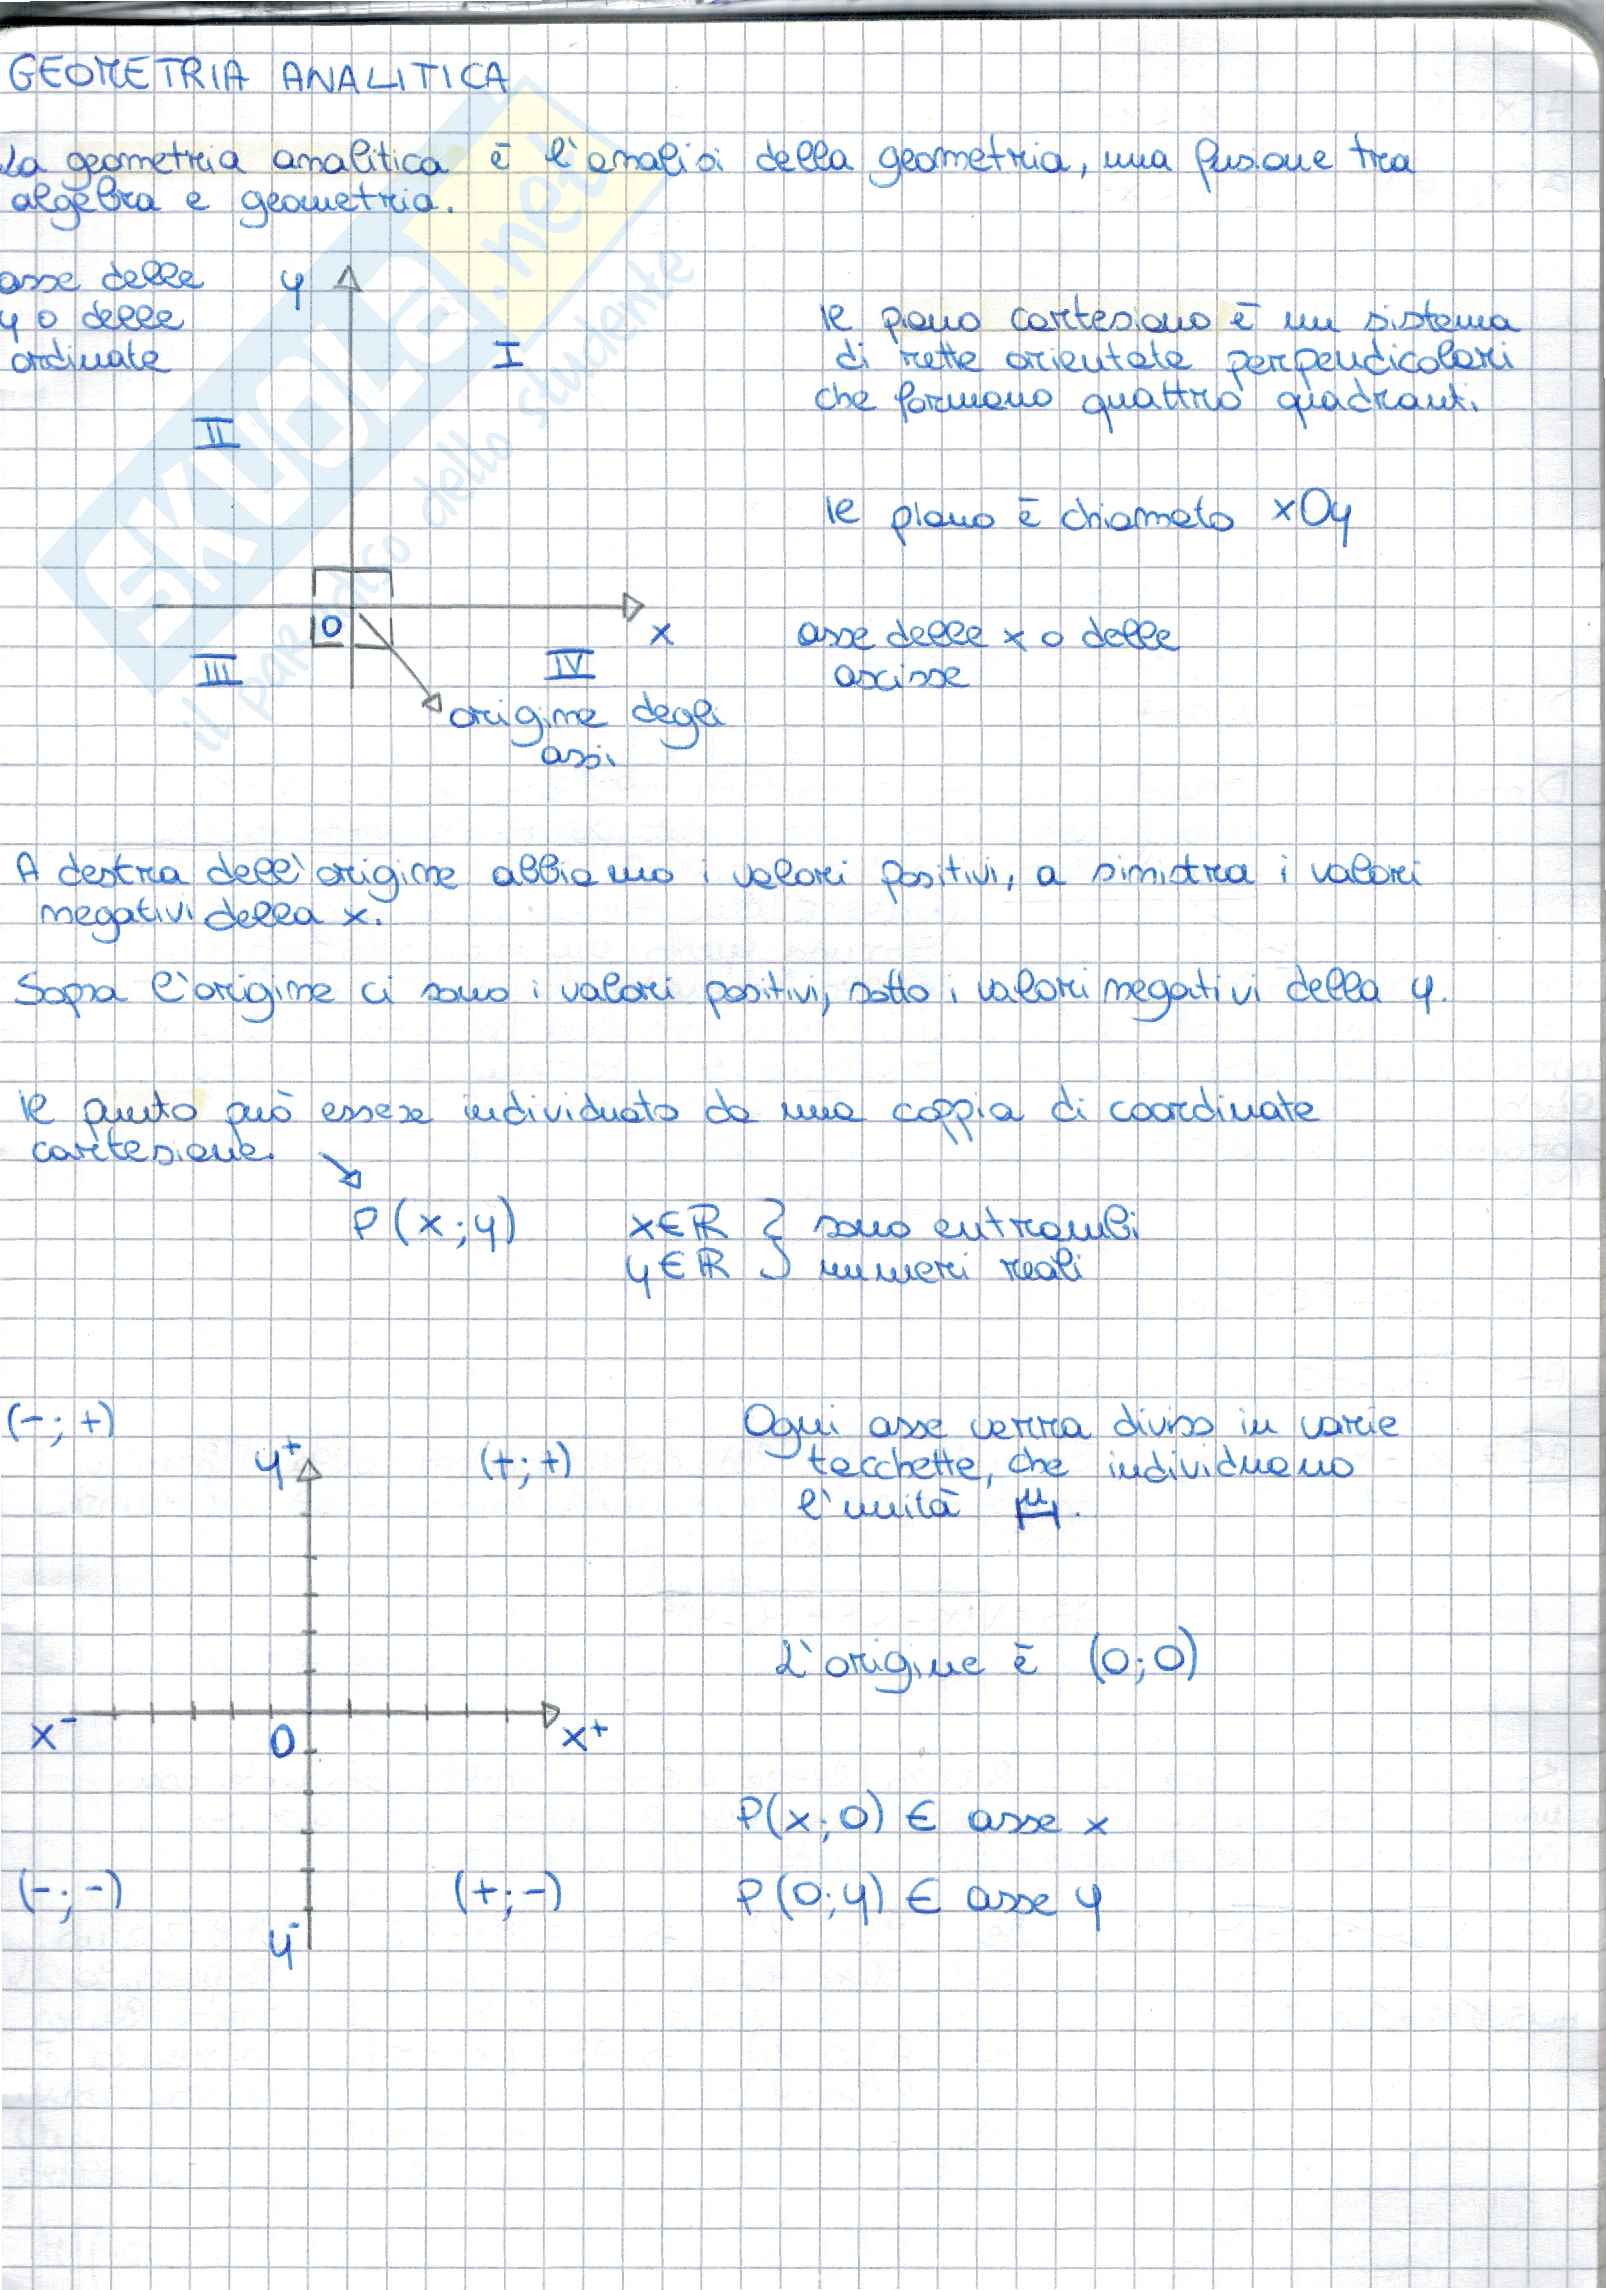 GEOMETRIA ANALITICA
La geometria analitica è l'analisi della geometria, una fusione tra
algebra e geometria.
asse delle
y o delle
ordinate
y
I
II
Il piano cartesiano è un sistema
di rette orientate perpendicolari
che formano quattro quadranti.
Il piano è chiamato xOy
O
x
III
IV
origine degli
assi
asse delle x o delle
ascisse
SKUOLA.net
il paradiso dello studente
A destra dell'origine abbiamo i valori positivi, a sinistra i valori
negativi della x.
Sopra l'origine ci sono i valori positivi, sotto i valori negativi della y.
Il punto può essere individuato da una coppia di coordinate
cartesiane.
P(x;y) x∈ℝ } sono entrambi
y∈ℝ numeri reali
(-;+)
y+
(+;+)
Ogni asse verrà diviso in varie
tacchette, che individuano
l'unità u.
L'origine è (0;0)
x-
O
x+
P(x;0) ∈ asse x
(-;-)
(+;-)
P(0;y) ∈ asse y
y-